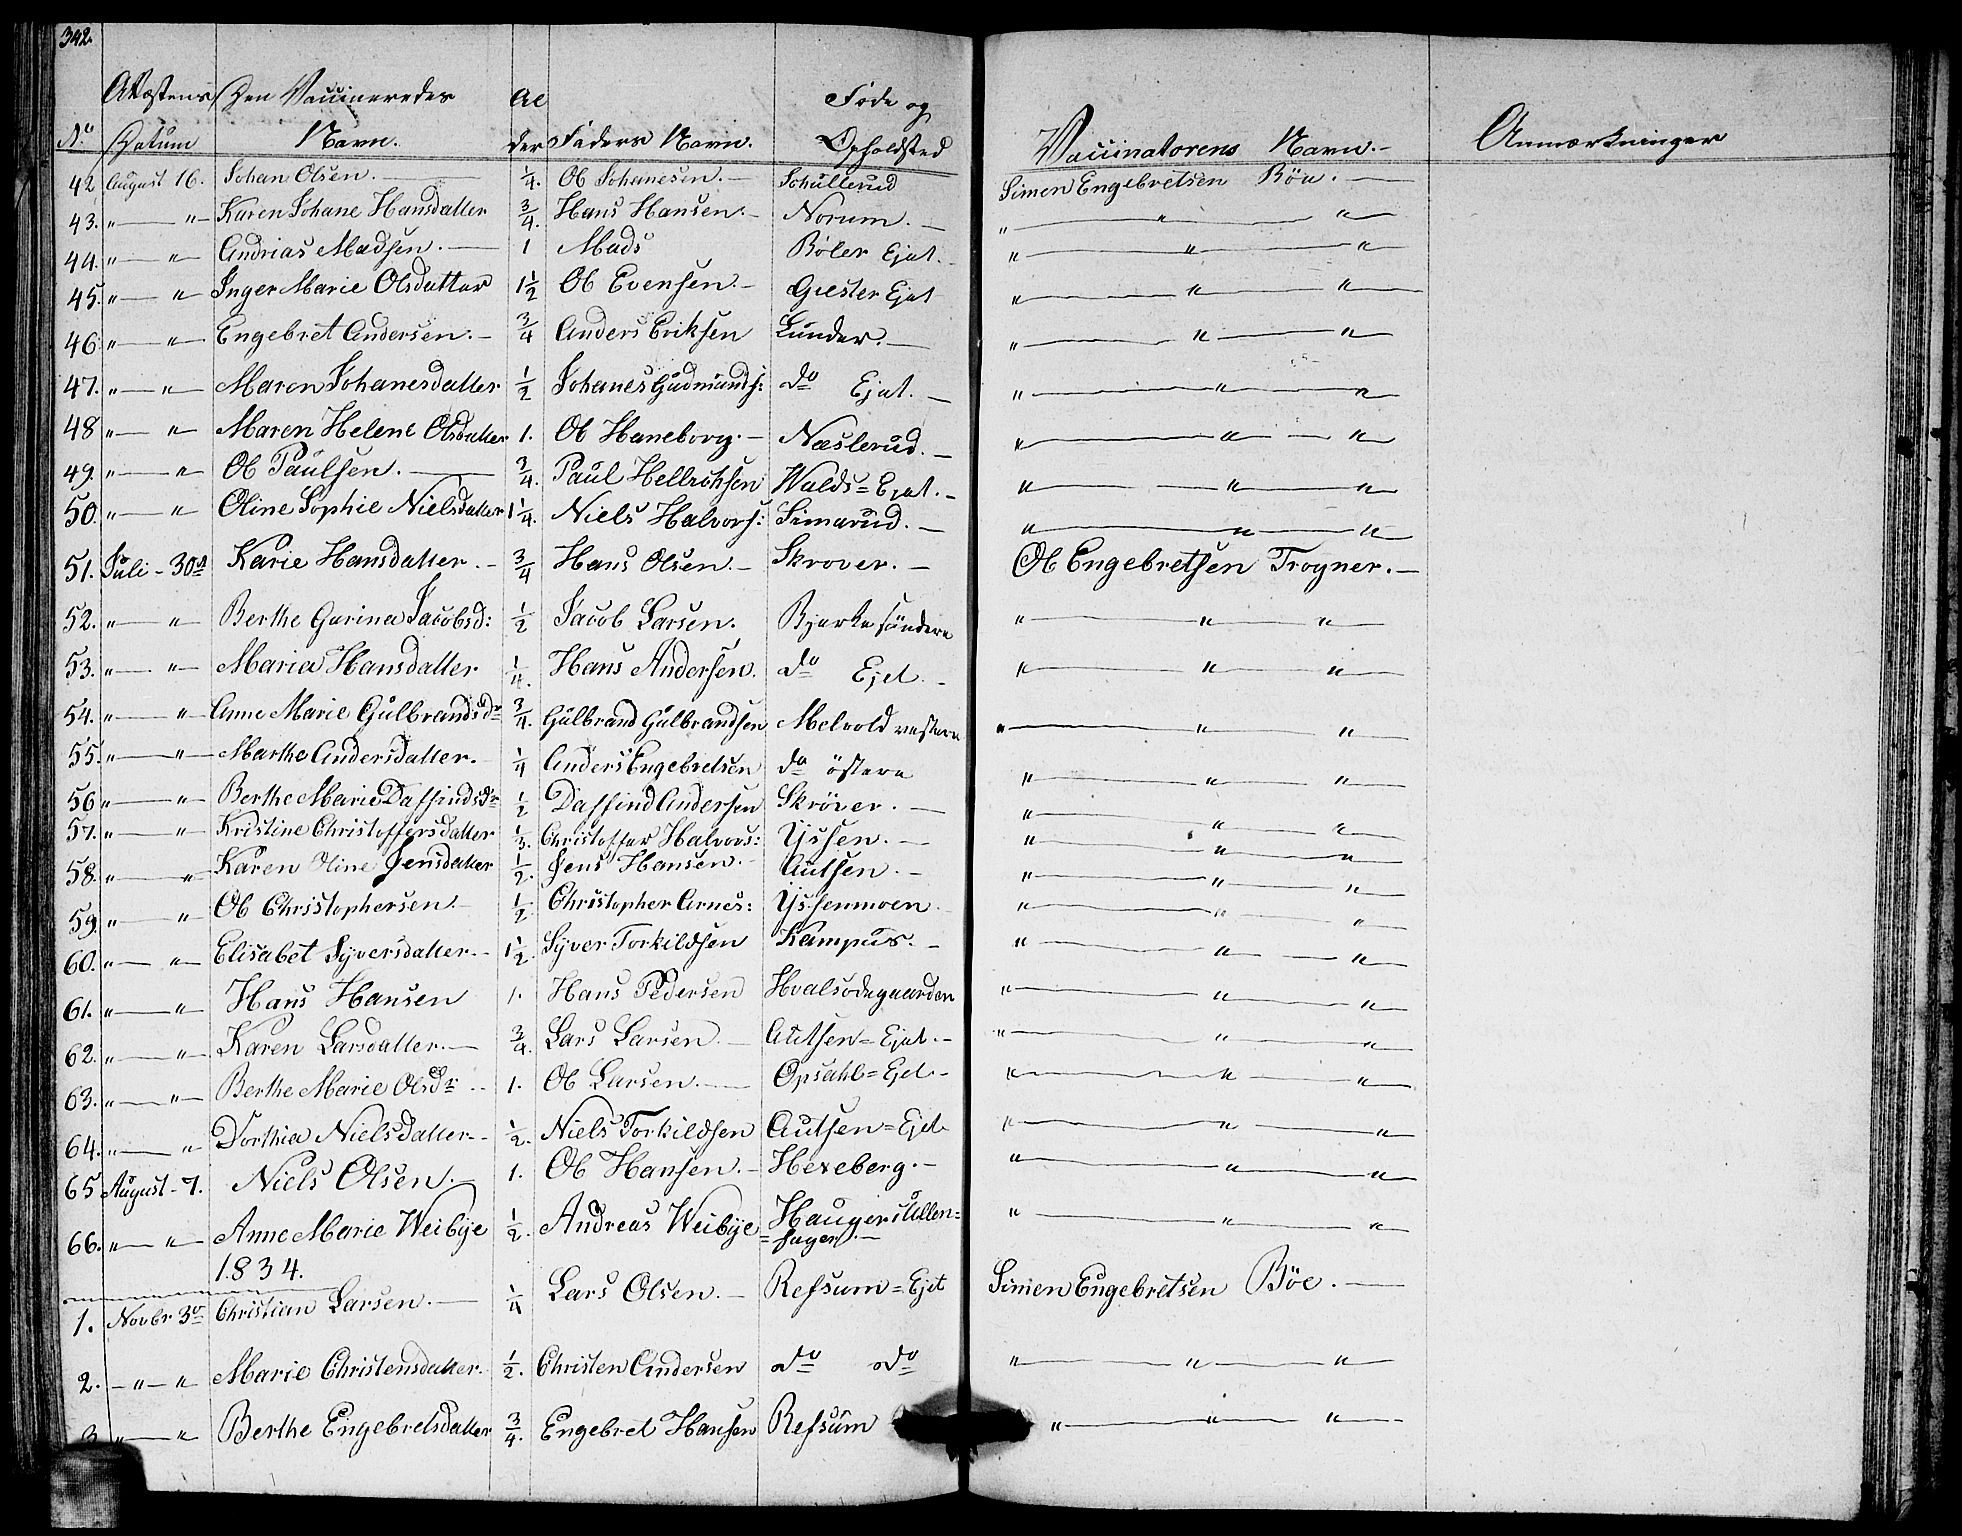 342.
Attestens Den Vaccineredes Al Føde og
No Datum Navn. der Faders Navn. Opholdsted Vaccinatorens Navn.- Anmærkninger
42 August 16. Johan Olsen. ¼. Ole Johanesen. Schullerud Simen Engebretsen Böe.
43. " " Karen Johane Hansdatter ¾. Hans Hansen. Norum. " " "
44. " " Andrias Madsen. 1 Mads Böler Ejet. " " "
45. " " Inger Marie Olsdatter 1½ Ole Evensen. Giester Ejet " " "
46. " " Engebret Andersen. ¾ Anders Eriksen Lunder. " " "
47. " " Maren Johanesdatter ½ Johanes Gudmunds: do Ejet. " " "
48 " " Maren Helene Olsdatter 1. Ole Haneborg. Næslerud. " " "
49. " " Ole Paulsen. ¾. Paul Walds=Ejet. " " "
50. " " Oline Sophie Nielsdatter 1¼. Niels Halvors: Simarud. " " "
51. Juli - 30d Karie Hansdatter. ¾ Hans Olsen. Skrover. Ole Engebretsen Trogner.
52. " " Berthe Garina Jacobsd: ½ Jacob Larsen. Bjerke söndere " " "
53. " " Maria Hansdatter ¼. Hans Andersen. do Ejet. " " "
54. " " Anne Marie Gulbrandsdr ¾. Gulbrand Gulbrandsen Melvold vestere " " "
55. " " Marthe Andersdatter. ¼ Anders Engebretsen do östere " " "
56 " " Berthe Marie Daffindsdr ½ Daffind Andersen Skröver. " " "
57. " " Kristine Christoffersdatter ⅓. Christoffer Halvors: Ijssen. " " "
58. " " Karen Oline Jensdatter ½. Jens Hansen. Autsen. " " "
59. " " Ole Christophersen. ½. Christopher Arnes: Ijssenmoen. " " "
60. " " Elisabet Syversdatter. 1½. Syver Torkildsen Kampus. " " "
61. " " Hans Hansen 1. Hans Pedersen Hvalsødegaarden " " "
62. " " Karen Larsdatter. ¾. Lars Larsen. Autsen=Ejet. " " "
63. " " Berthe Marie Olsdr 1. Ole Larsen. Opsahl=Ejet. " " "
64. " " Dorthia Nielsdatter. ½. Niels Torkildsen Autsen=Ejet. " " "
65 August - 7. Niels Olsen. 1. Ole Hansen. Hexeberg. " " "
66. " " Anne Marie Weibye ½. Andreas Weibye Hauger i Ullen= " " "
=sager.
1834.
1. Novbr 3o Christian Larsen. ¼ Lars Olsen. Refsum=Ejet Simen Engebretsen Böe.
2. " " Marie Christensdatter. ½. Christen Andersen do do " " "
3 " " Berthe Engebretsdatter ¾. Engebret Hansen Refsum " " "